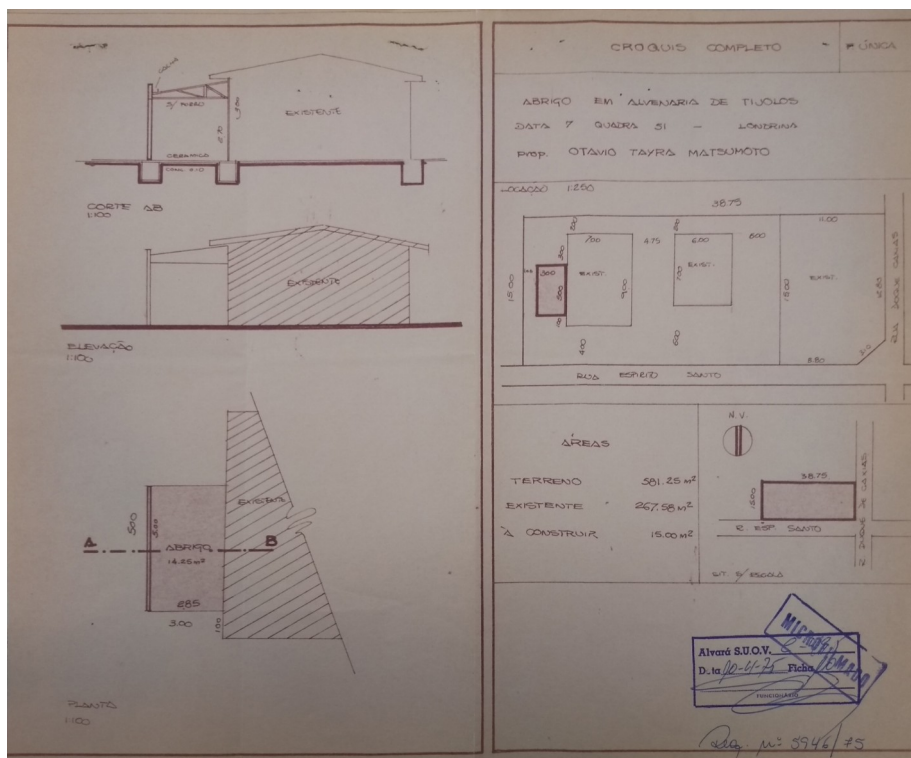 CALHA
S/ FORRO
EXISTENTE
2.70
CERÂMICA
CORTE AB
1:100
EXISTENTE
ELEVAÇÃO
1:100
EXISTENTE
5.00
5.00
A
B
ABRIGO
14.25 m²
2.85
3.00
1.00
PLANTA
1:100
CROQUIS COMPLETO
ÚNICA
ABRIGO EM ALVENARIA DE TIJOLOS
DATA 7 QUADRA 51 - LONDRINA
PROP. OTAVIO TAYRA MATSUMOTO
LOCAÇÃO 1:250
38.75
11.00
7.00
4.75
6.00
6.00
300
EXIST.
EXIST.
EXIST.
15.00
500
9.00
7.00
15.00
4.00
6.00
8.80
RUA DUQUE CAXIAS
RUA ESPIRITO SANTO
ÁREAS
TERRENO 581.25 m²
EXISTENTE 267.58 m²
À CONSTRUIR 15.00 m²
N.V.
38.75
15.00
R. ESP. SANTO
R. DUQUE DE CAXIAS
SIT. S/ ESCALA
MICROFILMADO
Alvará S.U.O.V.
Data Ficha
FUNCIONÁRIO
Req. nº 5946/75